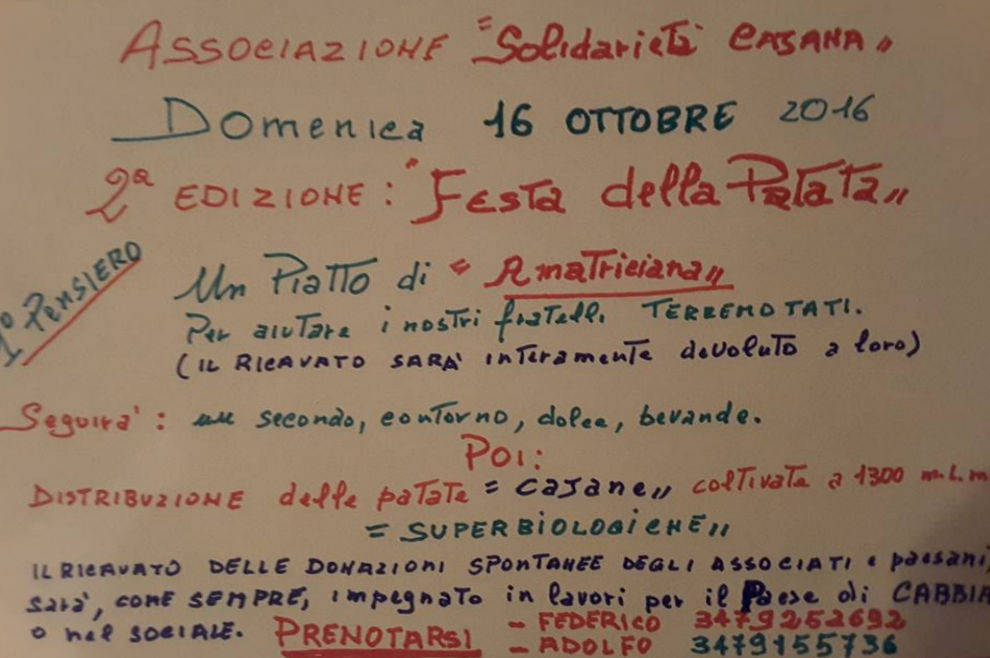 ASSOCIAZIONE "Solidarietà CASANA"
Domenica 16 OTTOBRE 2016
2ª EDIZIONE: "Festa della Patata"
1° PENSIERO
Un Piatto di "Amatriciana"
Per aiutare i nostri fratelli TERREMOTATI.
(IL RICAVATO SARA' interamente devoluto a loro)
Seguirà: un secondo, contorno, dolce, bevande.
POI:
DISTRIBUZIONE delle patate "casane" coltivate a 1300 m.l.m
"SUPERBIOLOGICHE"
IL RICAVATO DELLE DONAZIONI SPONTANEE DEGLI ASSOCIATI e paesani,
sarà, COME SEMPRE, impegnato in lavori per il Paese di CABBIA
o nel sociale. PRENOTARSI - FEDERICO 3479252692
- ADOLFO 3479155736